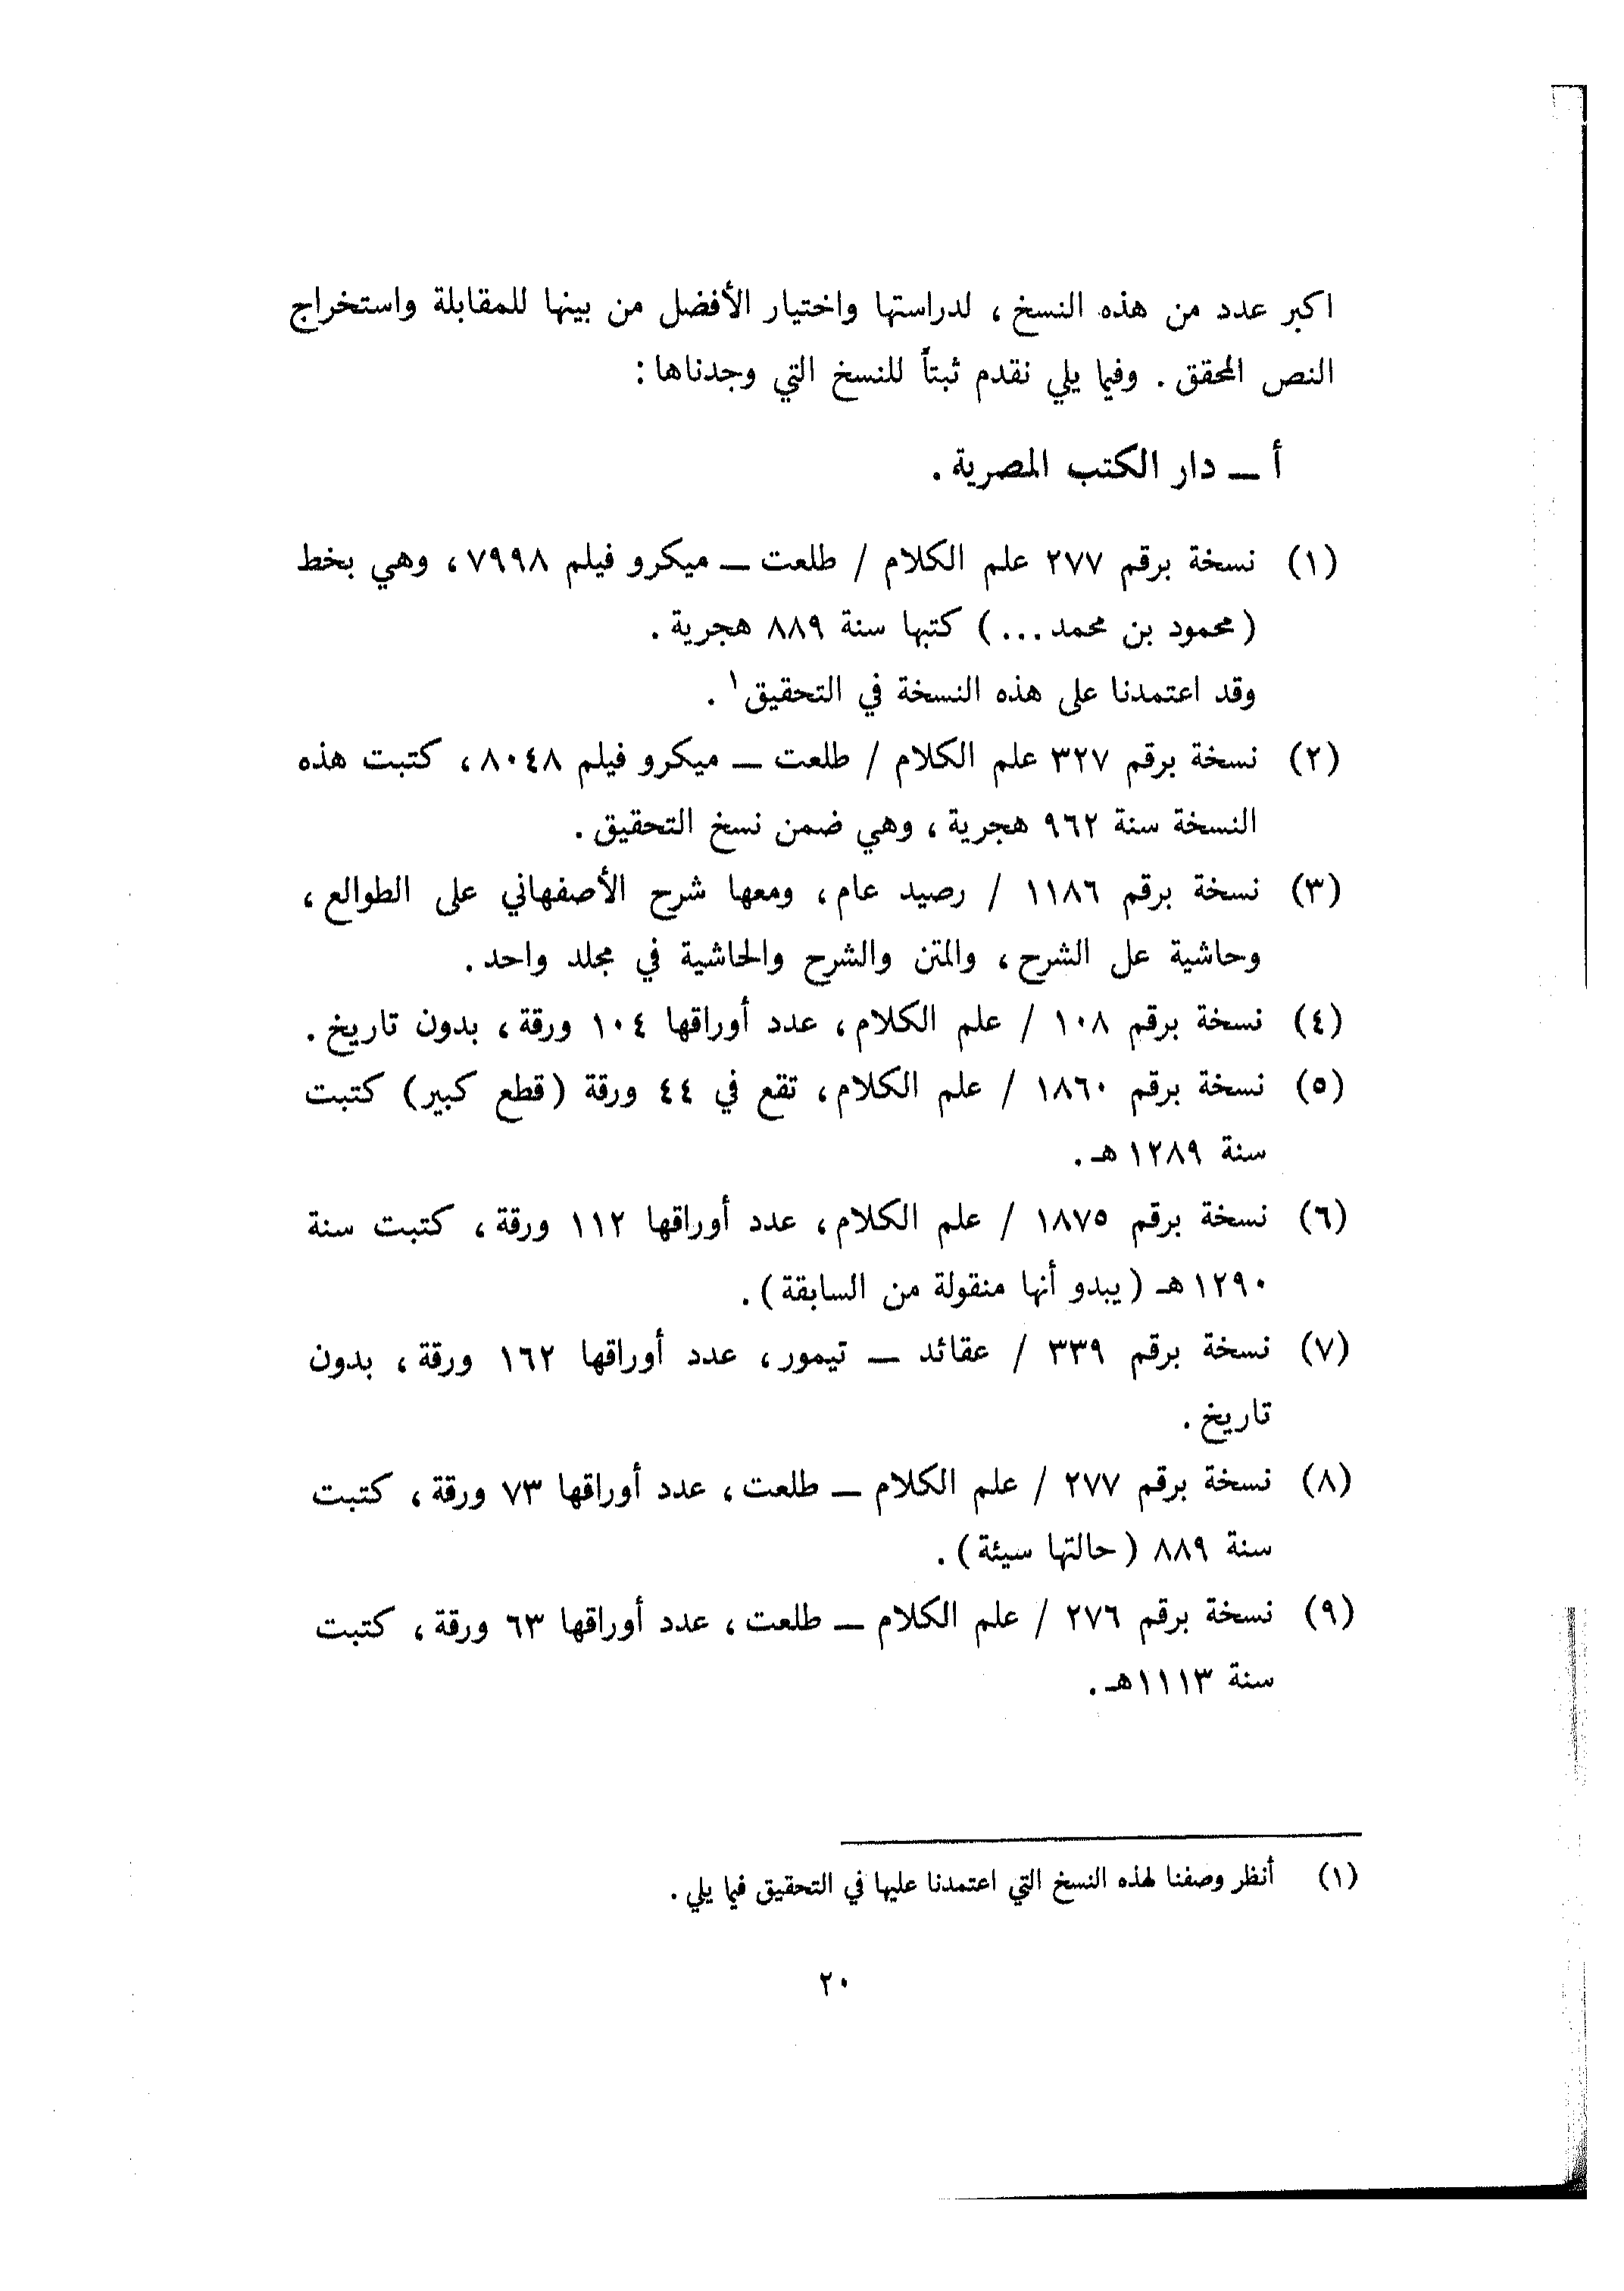 اكبر عدد من هذه النسخ ، لدراستها واختيار الأفضل من بينها للمقابلة واستخراج
النص المحقق . وفيما يلي نقدم ثبتاً للنسخ التي وجدناها :
أ ــ دار الكتب المصرية .
(١) نسخة برقم ٢٧٧ علم الكلام / طلعت ــ ميكرو فيلم ٧٩٩٨ ، وهي بخط
(محمود بن محمد ...) كتبها سنة ٨٨٩ هجرية .
وقد اعتمدنا على هذه النسخة في التحقيق١ .
(٢) نسخة برقم ٣٢٧ علم الكلام / طلعت ــ ميكرو فيلم ٨٠٤٨ ، كتبت هذه
النسخة سنة ٩٦٢ هجرية ، وهي ضمن نسخ التحقيق .
(٣) نسخة برقم ١١٨٦ / رصيد عام ، ومعها شرح الأصفهاني على الطوالع ،
وحاشية عل الشرح ، والمتن والشرح والحاشية في مجلد واحد .
(٤) نسخة برقم ١٠٨ / علم الكلام ، عدد أوراقها ١٠٤ ورقة ، بدون تاريخ .
(٥) نسخة برقم ١٨٦٠ / علم الكلام ، تقع في ٤٤ ورقة (قطع كبير) كتبت
سنة ١٢٨٩ هـ .
(٦) نسخة برقم ١٨٧٥ / علم الكلام ، عدد أوراقها ١١٢ ورقة ، كتبت سنة
١٢٩٠ هـ (يبدو أنها منقولة من السابقة) .
(٧) نسخة برقم ٣٣٩ / عقائد ــ تيمور ، عدد أوراقها ١٦٢ ورقة ، بدون
تاريخ .
(٨) نسخة برقم ٢٧٧ / علم الكلام ــ طلعت ، عدد أوراقها ٧٣ ورقة ، كتبت
سنة ٨٨٩ (حالتها سيئة) .
(٩) نسخة برقم ٢٧٦ / علم الكلام ــ طلعت ، عدد أوراقها ٦٣ ورقة ، كتبت
سنة ١١١٣هـ .
(١) أنظر وصفنا لهذه النسخ التي اعتمدنا عليها في التحقيق فيما يلي .
٢٠